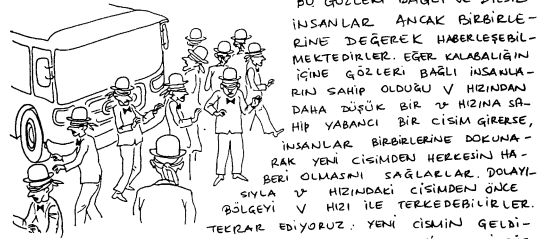 BU GÖZLERİ BAĞLI VE
İNSANLAR ANCAK BİRBİRLE-
RİNE DEĞEREK HABERLEŞEBİL-
MEKTEDİRLER. EĞER KALABALIĞIN
İÇİNE GÖZLERİ BAĞLI İNSANLA-
RIN SAHİP OLDUĞU V HIZINDAN
DAHA DÜŞÜK BİR v HIZINA SA-
HİP YABANCI BİR CİSİM GİRERSE,
İNSANLAR BİRBİRLERİNE DOKUNA-
RAK YENİ CİSİMDEN HERKESİN HA-
BERİ OLMASNI SAĞLARLAR. DOLAYI-
SIYLA v HIZINDAKİ CİSİMDEN ÖNCE
BÖLGEYİ V HIZI İLE TERKEDEBİLİRLER.
TEKRAR EDİYORUZ: YENİ CİSMİN GELDİ-